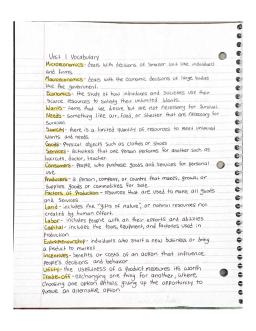 Unit 1 Vocabulary
Microeconomics- deals with decisions of smaller unit like individuals
and firms.
Macroeconomics- deals with the economic decisions of large bodies
like the government.
Economics- the study of how individuals and societies use their
scarce resources to satisfy their unlimited wants.
Wants- items that we desire but are not necessary for survival
Needs- something like air, food, or shelter that are necessary for
survival
Scarcity- there is a limited quantity of resources to meet unlimited
wants and needs.
Goods- Physical objects such as clothes or shoes
Services- activities that one person performs for another such as
haircuts, doctor, teacher
Consumers- People who purchase goods and services for personal
use.
Producers- a person, company, or country that makes, grows, or
supplies goods or commodities for sale.
Factors of Production- resources that are used to make all goods
and services
Land- includes the "gifts of nature", or natural resources not
created by human effort.
Labor- includes people with all their efforts and abilities
Capital- includes the tools, equipment, and factories used in
production
Entrepreneurship- individuals who start a new business or bring
a product to market
Incentives- benefits or costs of an action that influence
people's decisions and behavior
Utility- the usefulness of a product measures its worth
Trade-off- exchanging one thing for another, where
choosing one option entails giving up the opportunity to
pursue an alternative option